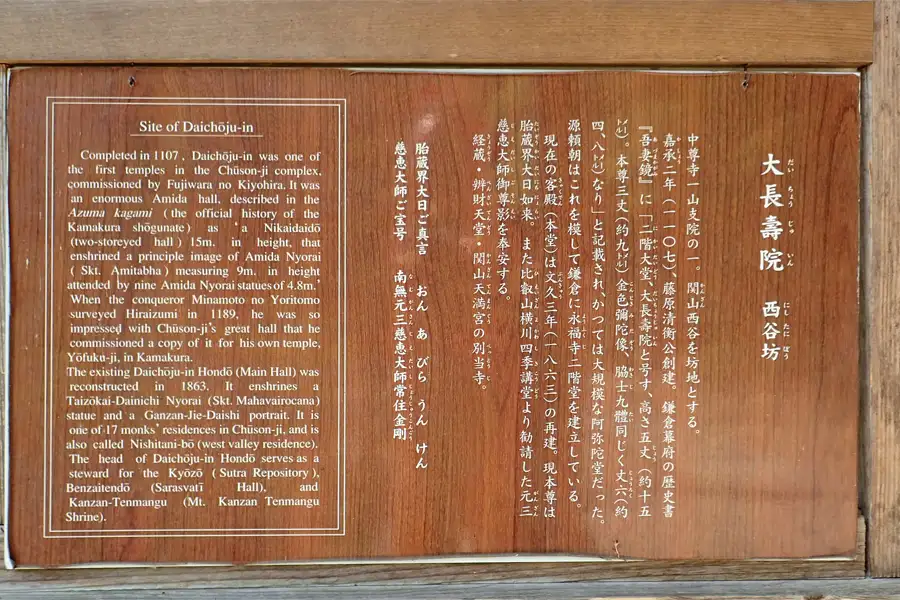 大長壽院 西谷坊
中尊寺一山支院の一。関山西谷を坊地とする。
嘉承二年(一一〇七)、藤原清衡公創建。鎌倉幕府の歴史書
『吾妻鏡』に「二階大堂、大長壽院と号す、高さ五丈(約十五
㍍)。本尊三丈(約九㍍)金色彌陀像、脇士九體同じく丈六(約
四、八㍍)なり」と記載され、かつては大規模な阿弥陀堂だった。
源頼朝はこれを模して鎌倉に永福寺二階堂を建立している。
現在の客殿(本堂)は文久三年(一八六三)の再建。現本尊は
胎蔵界大日如来。また比叡山横川四季講堂より勧請した元三
慈恵大師御尊影を奉安する。
経蔵・辨財天堂・関山天満宮の別当寺。
胎蔵界大日ご真言 おん あ びら うん けん
慈恵大師ご宝号 南無元三慈恵大師常住金剛
Site of Daichōju-in
Completed in 1107, Daichōju-in was one of
the first temples in the Chūson-ji complex,
commissioned by Fujiwara no Kiyohira. It was
an enormous Amida hall, described in the
Azuma kagami (the official history of the
Kamakura shōgunate) as 'a Nikaidaidō
(two-storeyed hall) 15m. in height, that
enshrined a principle image of Amida Nyorai
(Skt. Amitabha) measuring 9m. in height
attended by nine Amida Nyorai statues of 4.8m.'
When the conqueror Minamoto no Yoritomo
surveyed Hiraizumi in 1189, he was so
impressed with Chūson-ji's great hall that he
commissioned a copy of it for his own temple,
Yōfuku-ji, in Kamakura.
The existing Daichōju-in Hondō (Main Hall) was
reconstructed in 1863. It enshrines a
Taizōkai-Dainichi Nyorai (Skt. Mahavairocana)
statue and a Ganzan-Jie-Daishi portrait. It is
one of 17 monks' residences in Chūson-ji, and is
also called Nishitani-bō (west valley residence).
The head of Daichōju-in Hondō serves as a
steward for the Kyōzō (Sutra Repository),
Benzaitendō (Sarasvatī Hall), and
Kanzan-Tenmangu (Mt. Kanzan Tenmangu
Shrine).